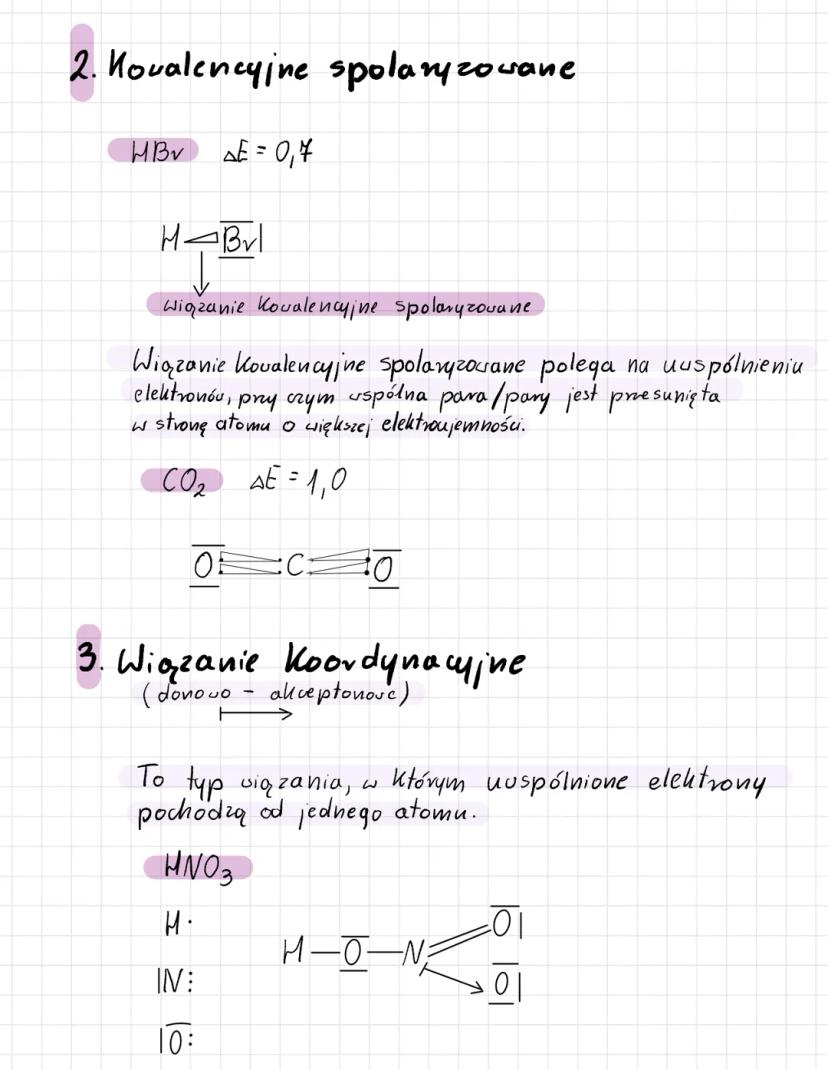 2. Kowalencyjne spolaryzowane
HBr ΔE = 0,7
H Br
wiązanie kowalencyjne spolaryzowane
Wiązanie kowalencyjne spolaryzowane polega na uwspólnieniu
elektronów, przy czym wspólna para/pary jest przesunięta
w stronę atomu o większej elektroujemności.
CO₂ ΔE = 1,0
O C O
3. Wiązanie koordynacyjne
(donowo - akceptorowe)
To typ wiązania, w którym uwspólnione elektrony
pochodzą od jednego atomu.
HNO₃
H· O|
H—O—N
|N: O|
|O: